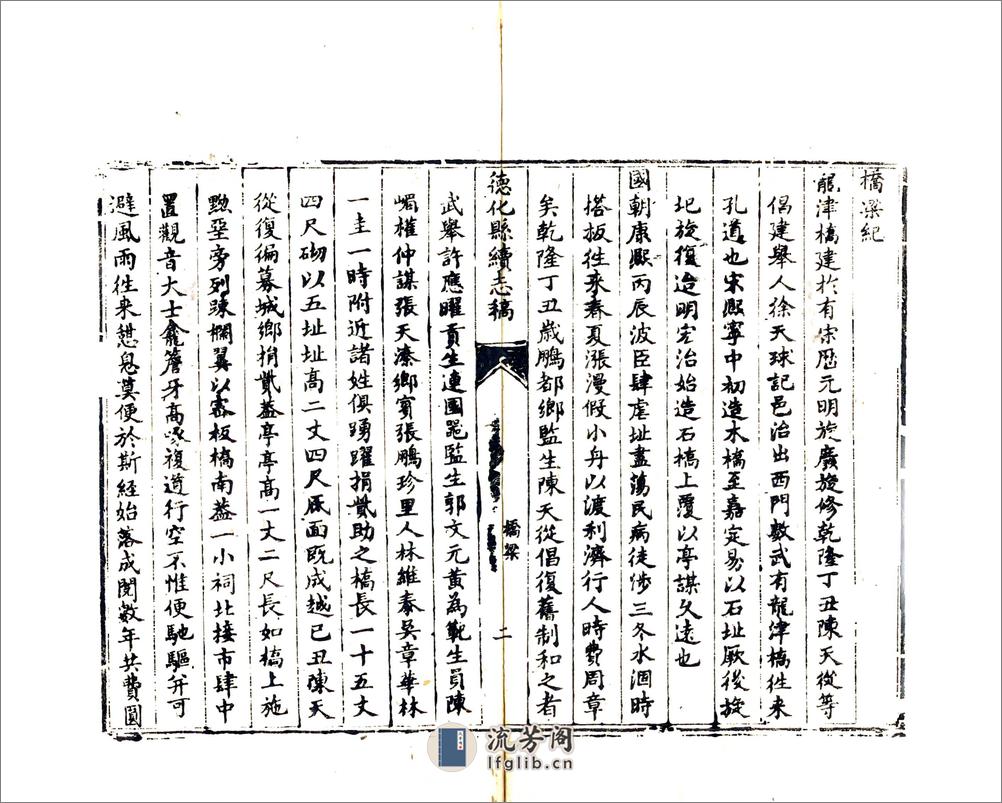 橋梁紀
龍津橋建於有宋歷元明旋廢旋修乾隆丁丑陳天從等
倡建舉人徐天球記邑治出西門數武有龍津橋徃来
孔道也宋熙寧中初造木橋至嘉定易以石址厥後旋
圮旋復迨明宏治始造石橋上覆以亭謀久遠也
國朝康熙丙辰波臣肆虐址盡蕩民病徒涉三冬水涸時
搭板徃来春夏漲漫假小舟以渡利濟行人時費周章
矣乾隆丁丑歲鵬都鄉監生陳天從倡復舊制和之者
德化縣續志稿
橋梁
二
武舉許應曜貢生連國器監生郭文元黃為範生員陳
嵋權仲謀張天溱鄉賓張鵬珍里人林維泰吳章華林
一圭一時附近諸姓俱踴躍捐貲助之橋長一十五丈
四尺砌以五址址高二丈四尺底面既成越己丑陳天
從復徧募城鄉捐貲葢亭亭高一丈二尺長如橋上施
黝堊旁列踈欄翼以番板橋南葢一小祠北接市肆中
置觀音大士龕簷牙高啄複道行空不惟便馳驅并可
避風雨徃来憇息莫便於斯經始落成閱數年共費圓
流芳阁
lfglib.cn